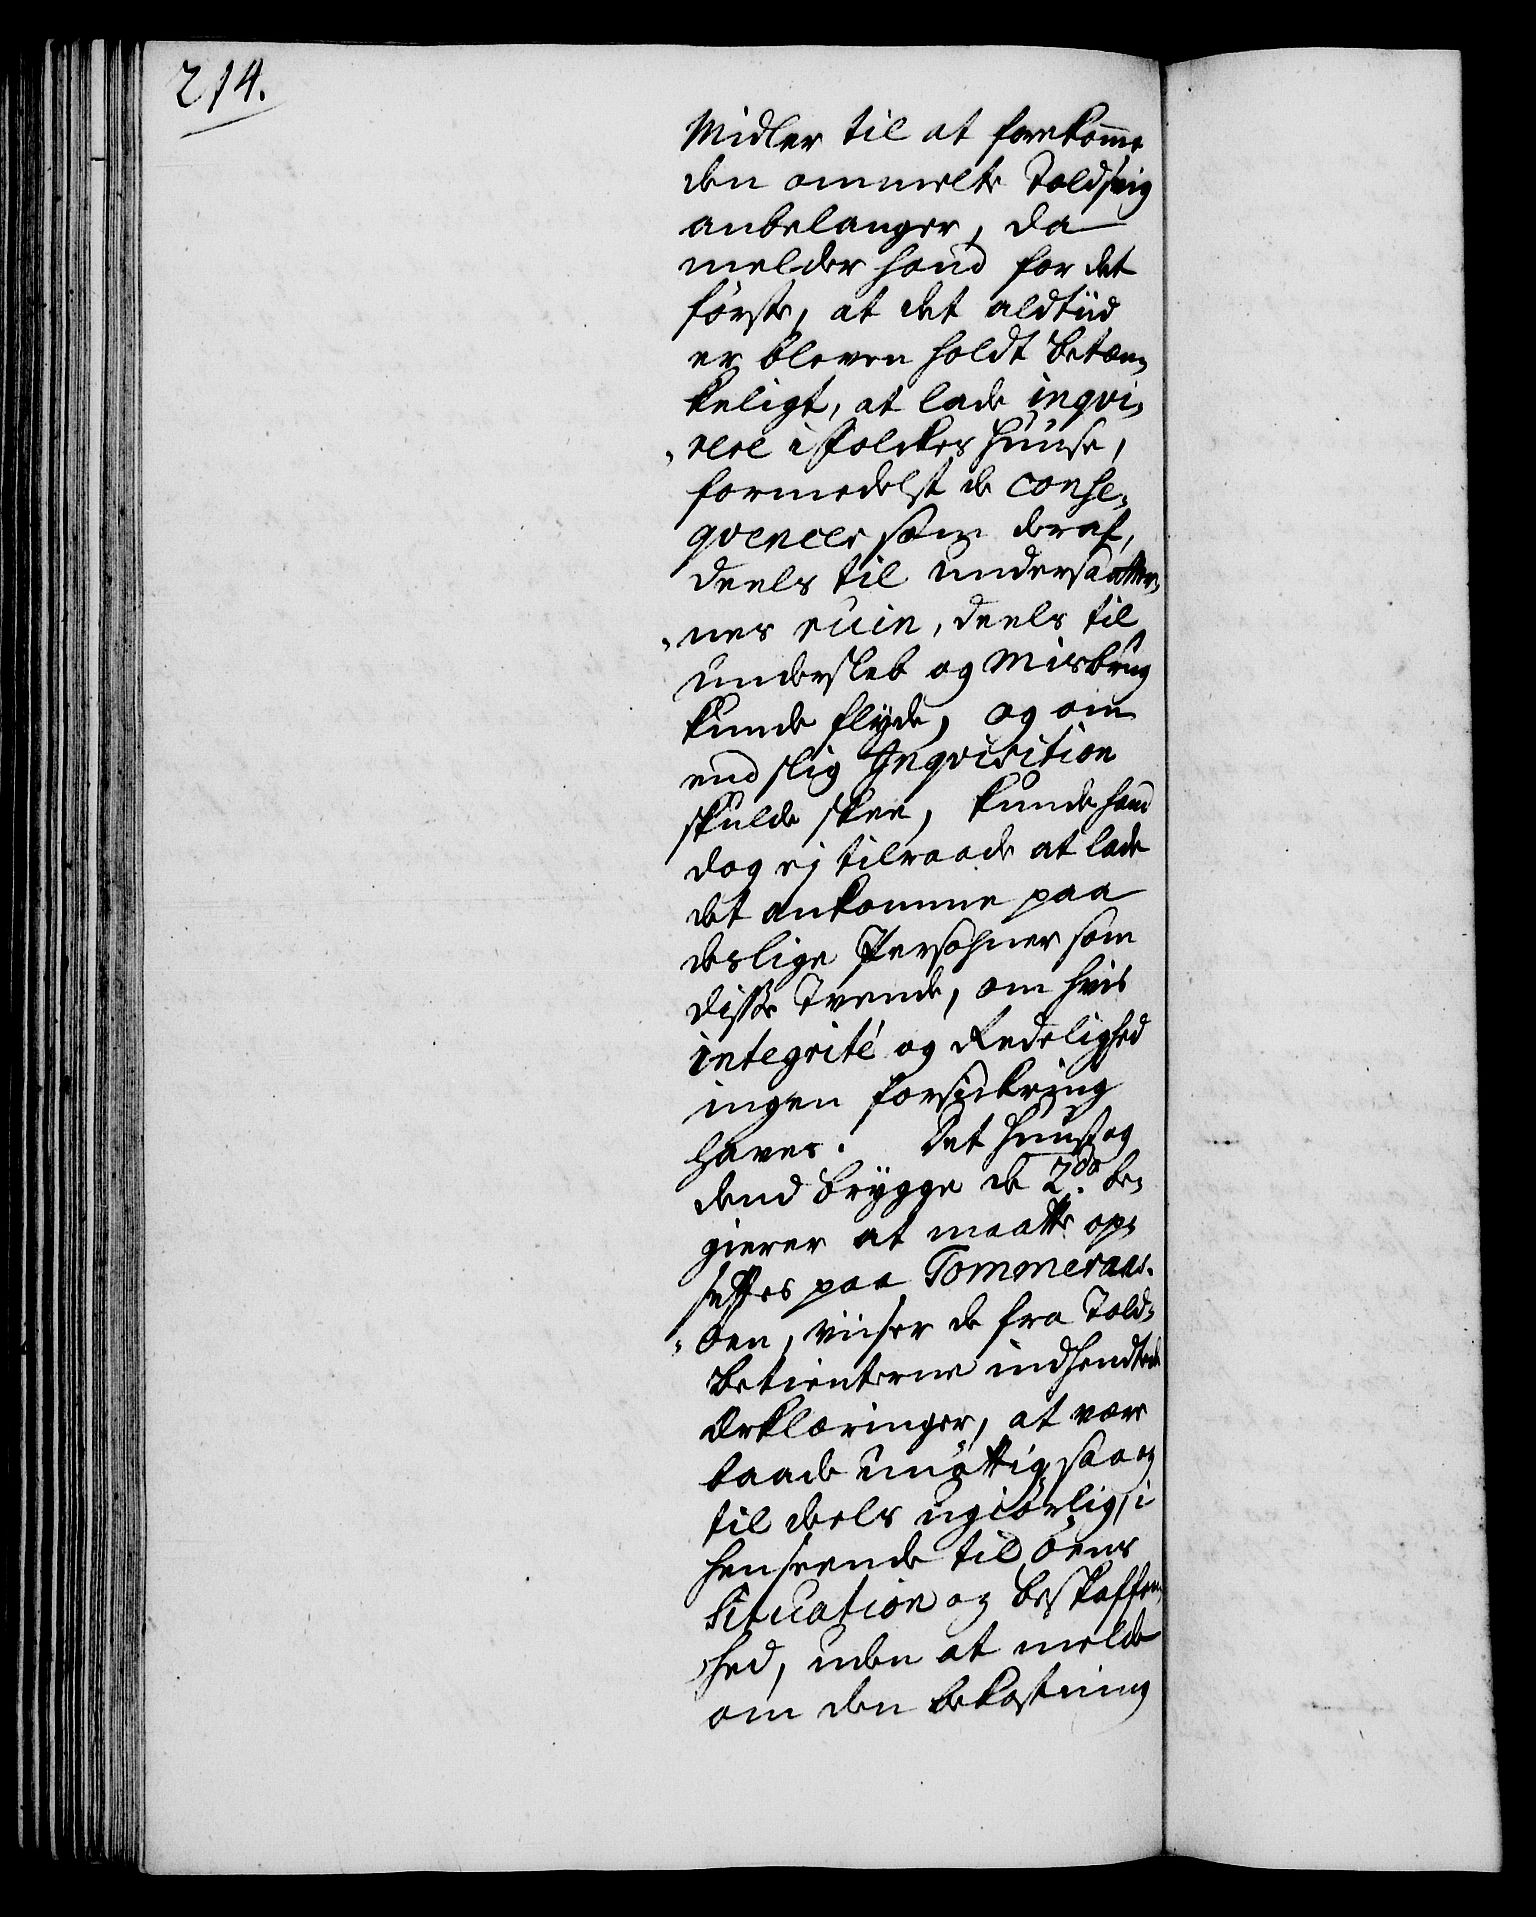 214.
Midler til at forekom̄e
den ommelte Toldsvig
anbelanger, da
melder hand for det
förste, at det aldtiid
er bleven holdt betæn,
keligt, at lade inqvi,
„rere i Folckes Huuse,
formedelst de conse,
qvencer som deraf,
deels til undersaatter,
„nes ruin, deels til
Undersleb og Misbrug
kunde flyde, og om
end slig Inqvisition
skulde skee, kunde hand
dog ej tilraade at lade
det ankomme paa
deslige Persohner som
disse Tvende, om hvis
integrité og Redelighed
ingen forsickring
haves. Det Huus og
dend brygge de 2do be,
gierer at maatte op,
settes paa Tommeraas-
„öen, viiser de fra Told,
betienterne indhendtede
Erklæringer, at være
baade unöttig saa og
til deels ugiörlig, i
henseende til Öens
Situation og beskaffen,
„hed, uden at melde
om den bekostning